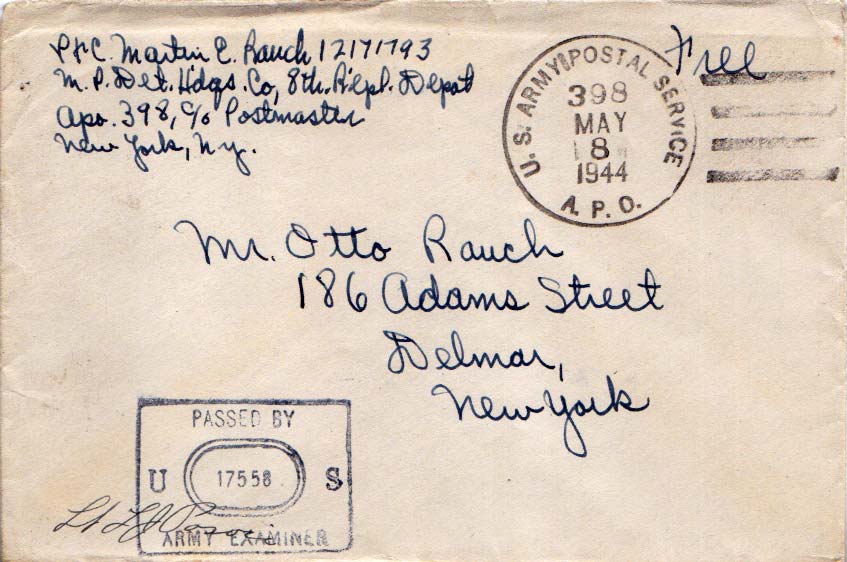 Pfc. Martin E. Rauch 12171793
M. P. Det. Hdqs. Co, 8th. Repl. Depot
Apo. 398, c/o Postmaster
New York, N.y.
Free
U. S. ARMY POSTAL SERVICE
398
MAY
8
1944
A. P. O.
Mr. Otto Rauch
186 Adams Street
Delmar,
New York
PASSED BY
U 17558 S
ARMY EXAMINER
Lt